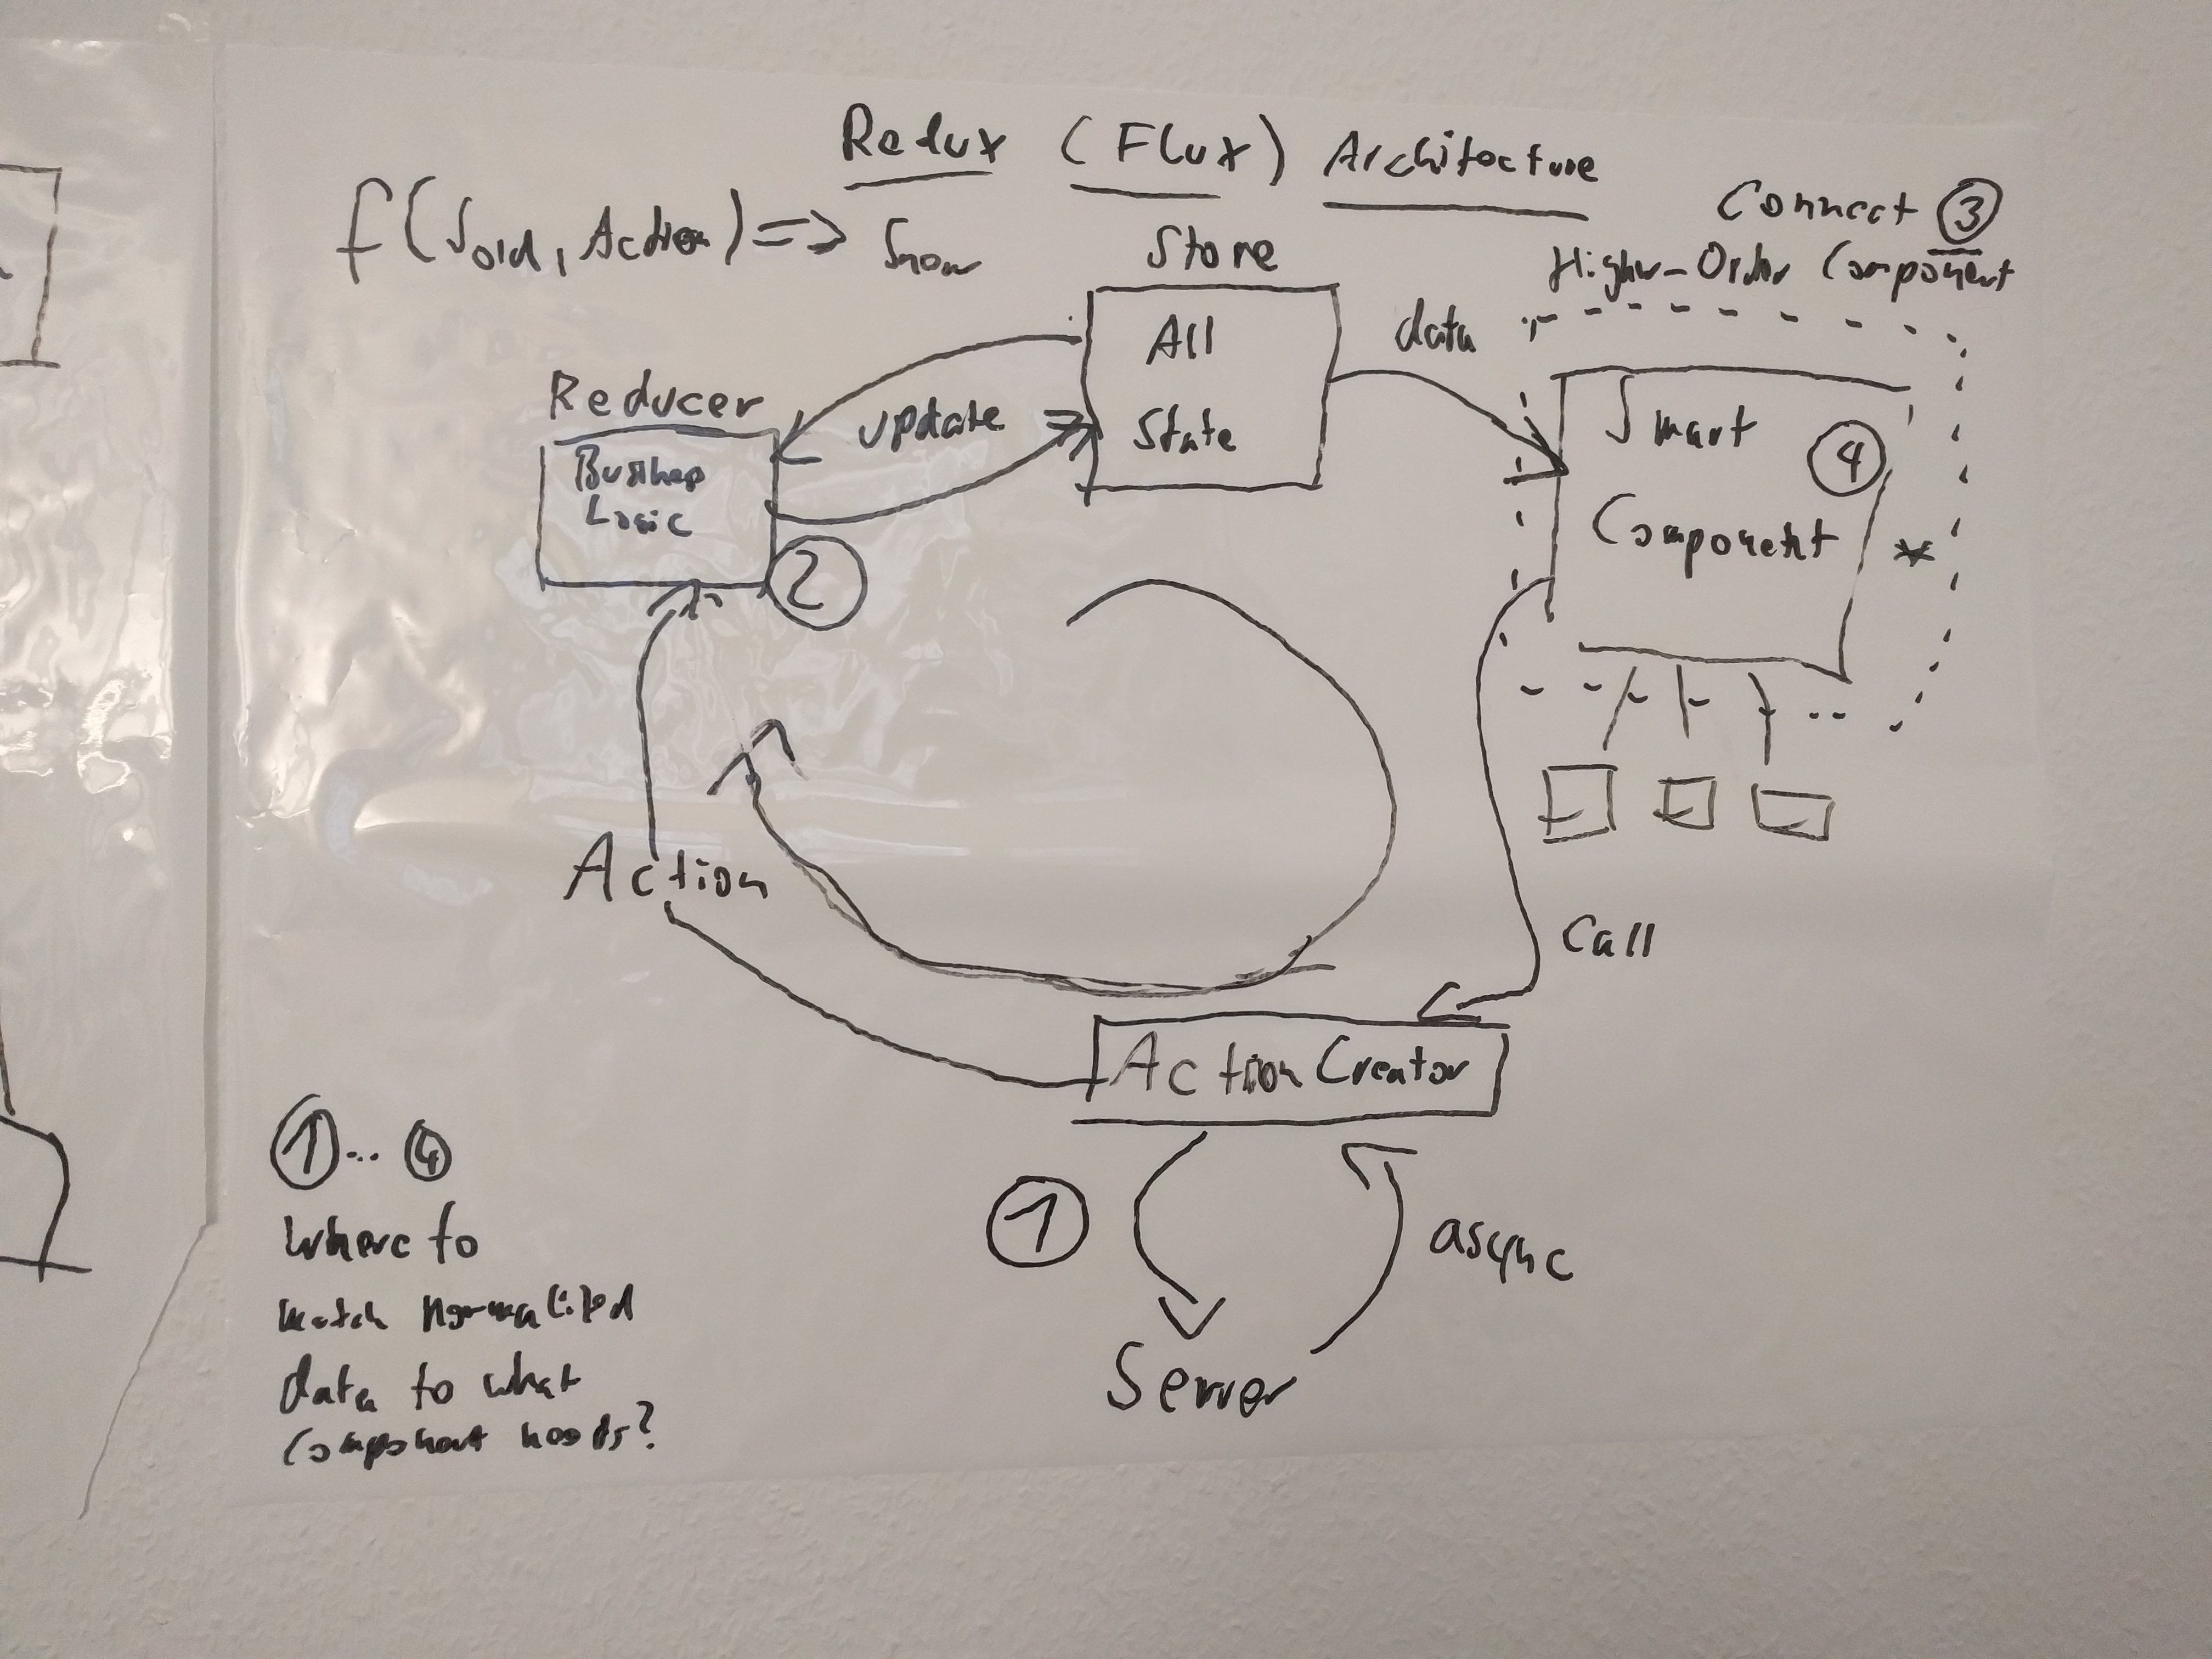 Redux (Flux) Architecture
f(Sold, Action) => Snew
Connect 3
Higher-Order Component
Store
All
State
data
Reducer
Business
Logic
2
update
Smart
Component
4
*
Action
Call
Action Creator
1
async
Server
1 ... 4
Where to
match normalized
data to what
component needs?